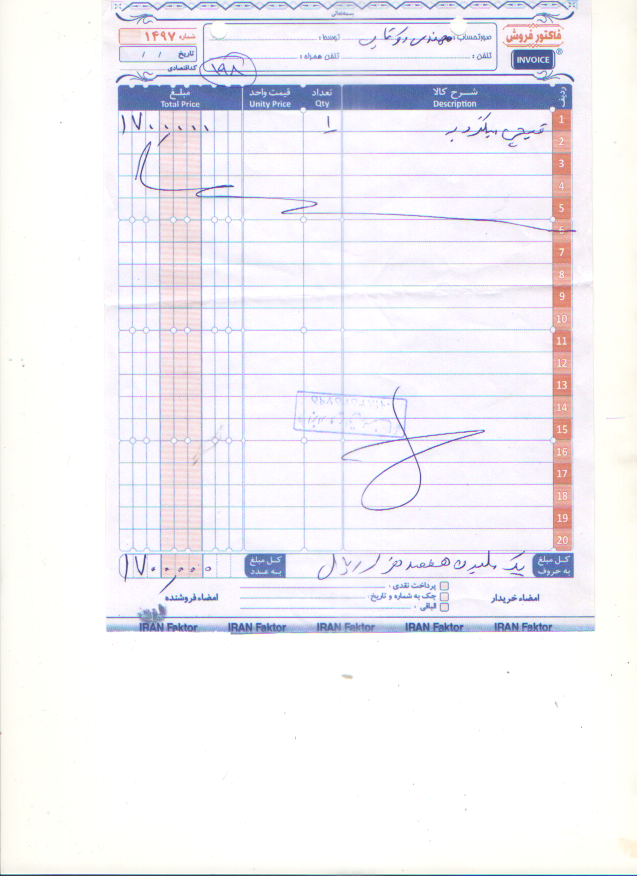 بسمه‌تعالی
فاکتور فروش
INVOICE
صورتحساب: مهندس
توسط:
تلفن:
تلفن همراه:
شماره ۱۴۹۷
تاریخ / /
کداقتصادی
۱۹۸
ردیف شرح کالا تعداد قیمت واحد مبلغ
Description Qty Unity Price Total Price
1 قیچی ۱ ۱۷۰۰۰۰۰
2
3
4
5
6
7
8
9
10
11
12
13
14
15
16
17
18
19
20
کل مبلغ به حروف یک ملیون هفتصد هزار ریال کل مبلغ به عدد ۱۷۰۰۰۰۰
پرداخت نقدی:
چک به شماره و تاریخ:
الباقی:
امضاء خریدار
امضاء فروشنده
IRAN Faktor IRAN Faktor IRAN Faktor IRAN Faktor IRAN Faktor